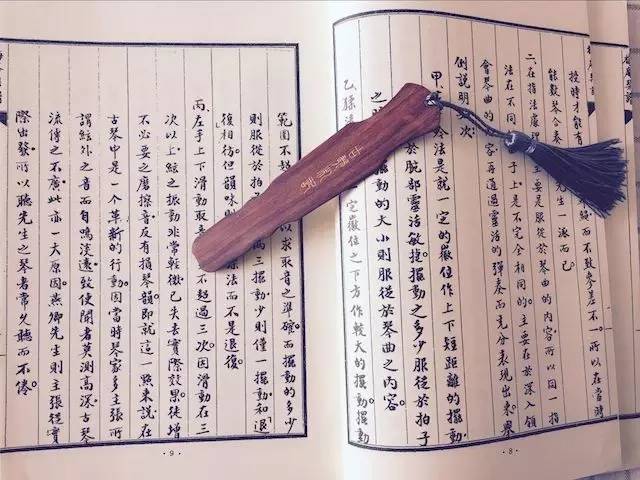 授時才能有 緒而不致參差不一。所以在當時
能數琴合奏 先生一派而已。
二、在指法處理 主要是服從於琴曲的內容所以同一指
法在不同 子上是不完全相同的。主要在於深入領
會琴曲的 容再通過靈活的彈奏而充分表現出來舉
例說明 次
甲、 法是就一定的徽位作上下短距離的擺動。
於腕部靈活敏捷。擺動之多少服從於拍子
之 擺動的大小則服從於琴曲之內容。
乙、猱法 一定徽位之下方作較大的擺動。擺動
·8·
範圍不超 以求取音之準確。而擺動的多少
則服從於拍 兩三擺動。少則僅一擺動和「退
復」相彷但韻味則 猱法而不是退復。
丙、左手上下滑動取音 不超過三次。因滑動在三
次以上絃之振動非常輕微已失去實際效果。徒增
不必要之磨擦音。反有損琴韻。即就這一點來說在
古琴中是一个革新的行動。因當時琴家多主張所
謂絃外之音而自鳴淡遠。致使聞者莫測高深。古琴
流傳之不廣此亦一大原因。燕卿先生則主張從實
際出發。所以聽先生之琴者常久聽而不倦。
·9·